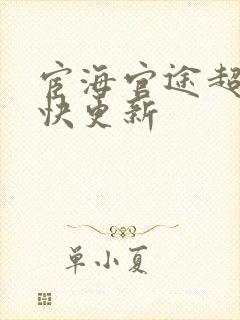 宦海官途超
快更新
单小夏